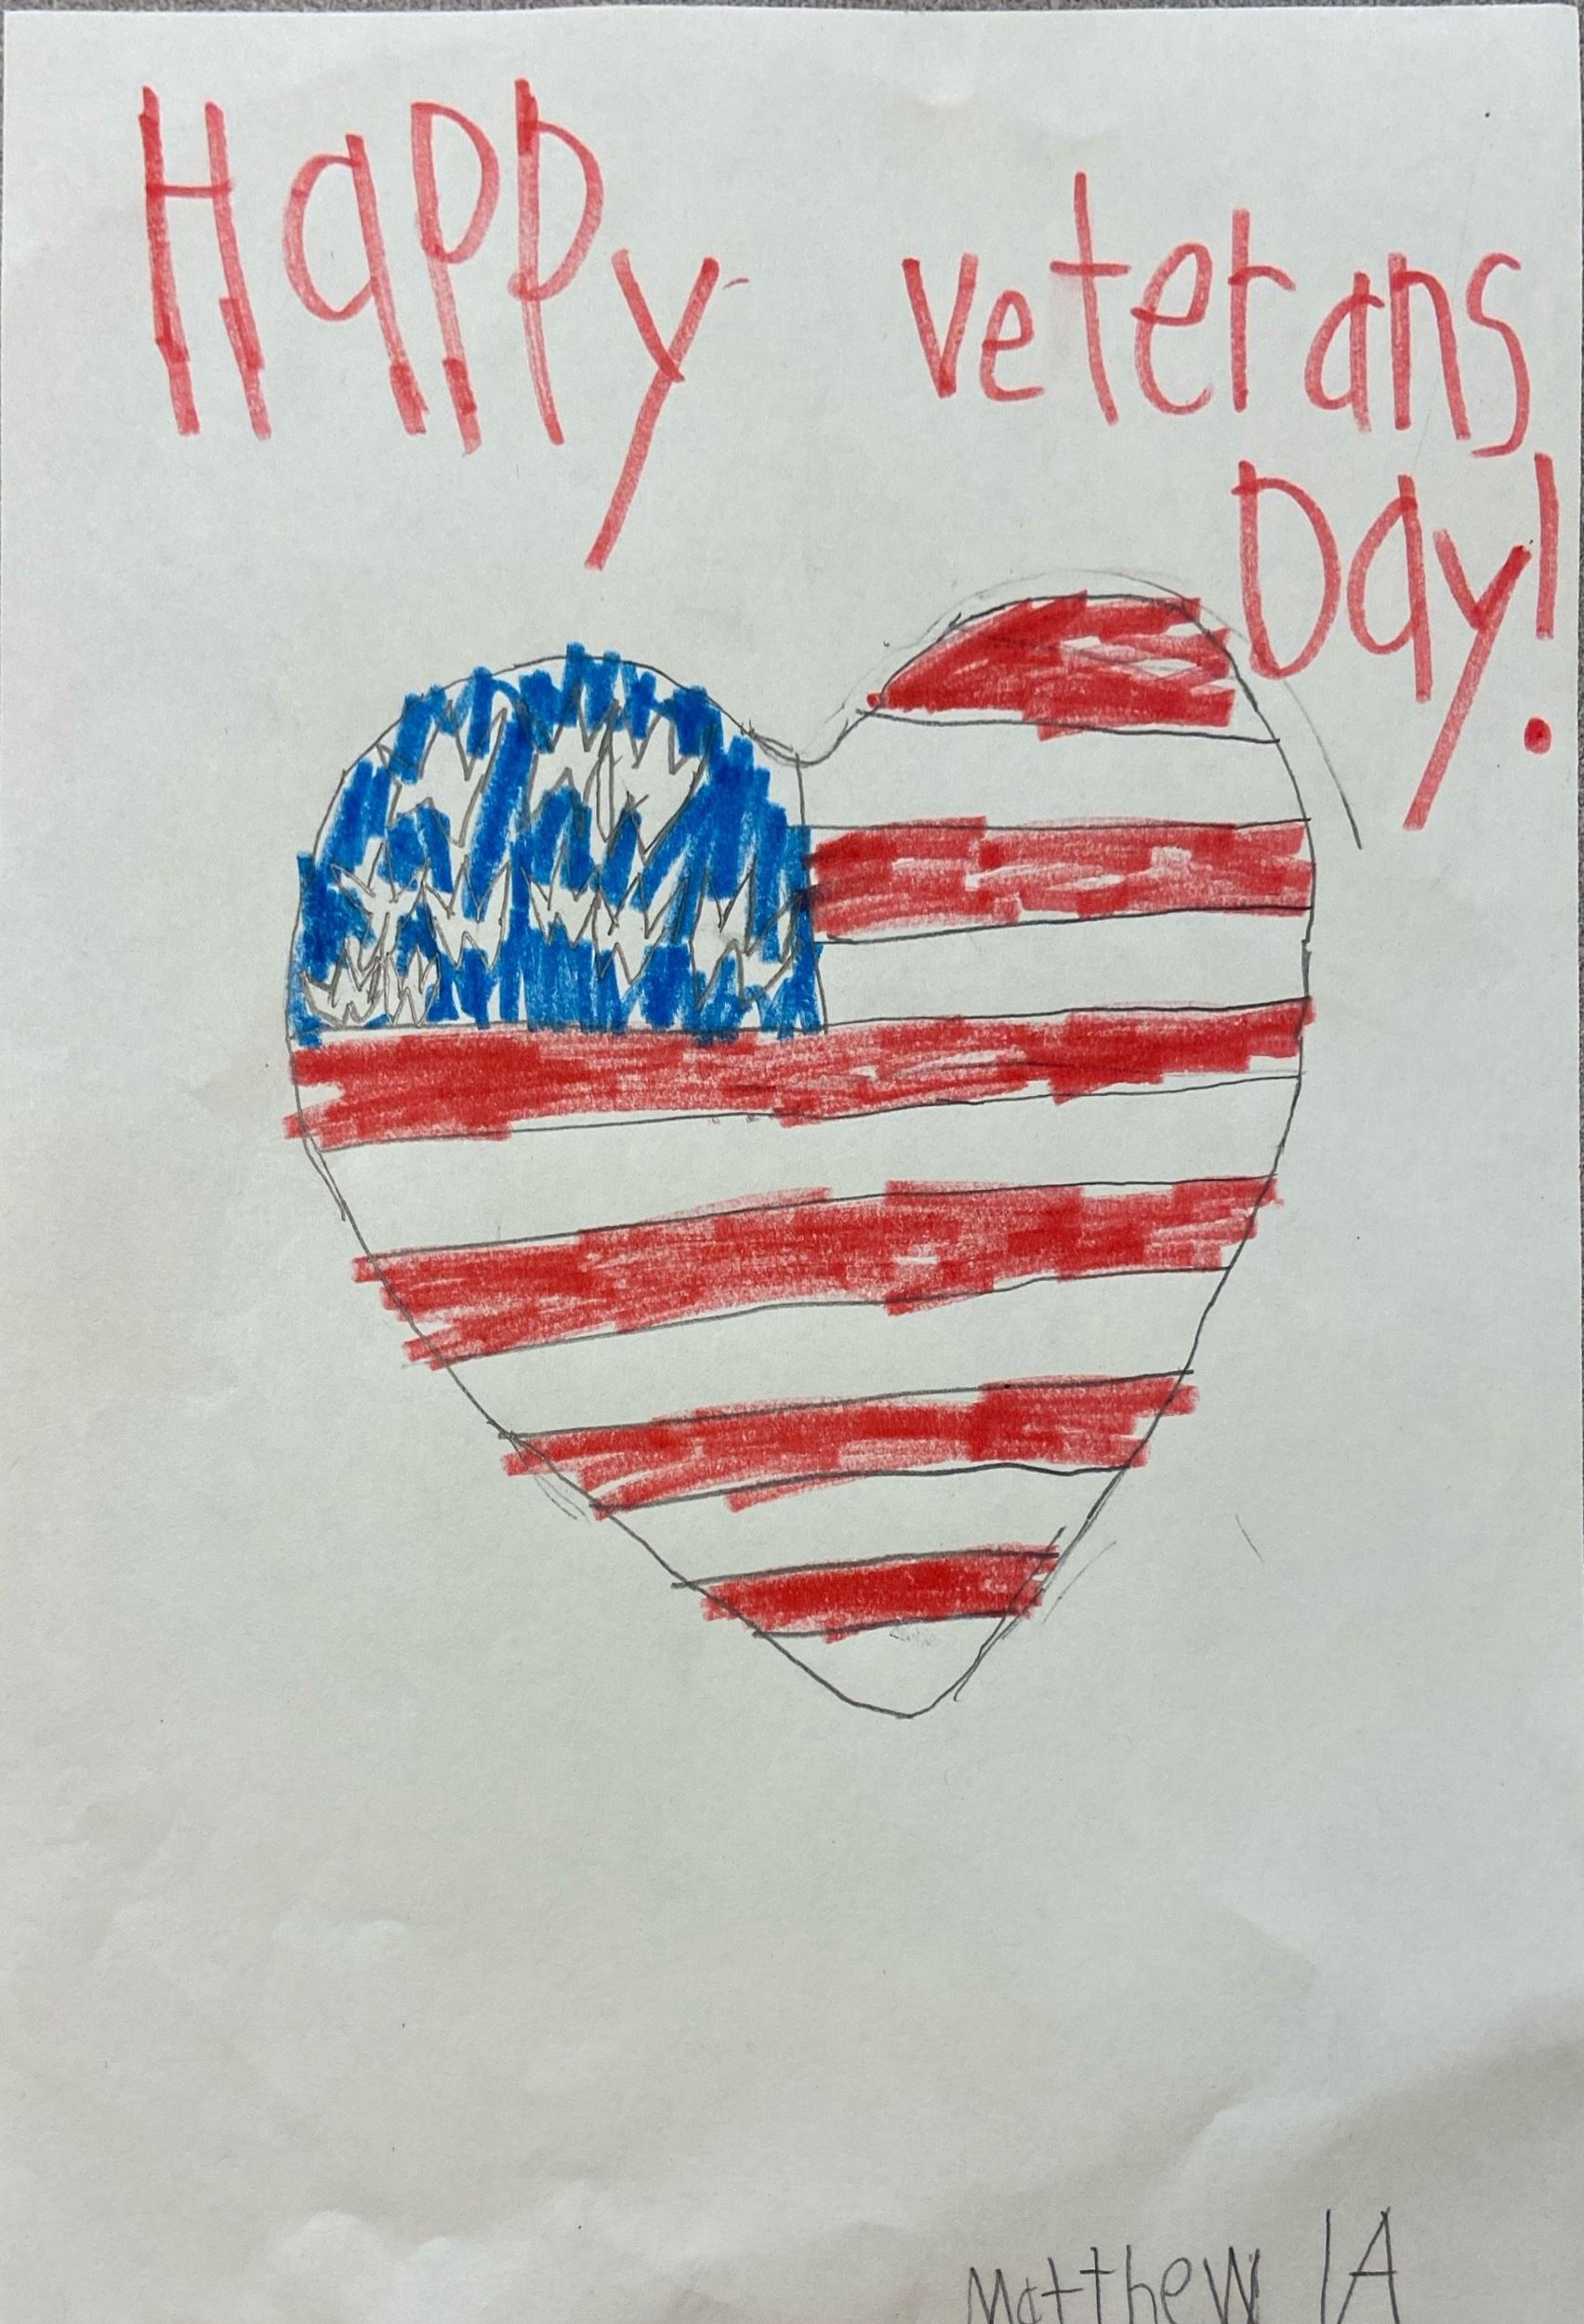 Happy veterans
Day!
Matthew 1A